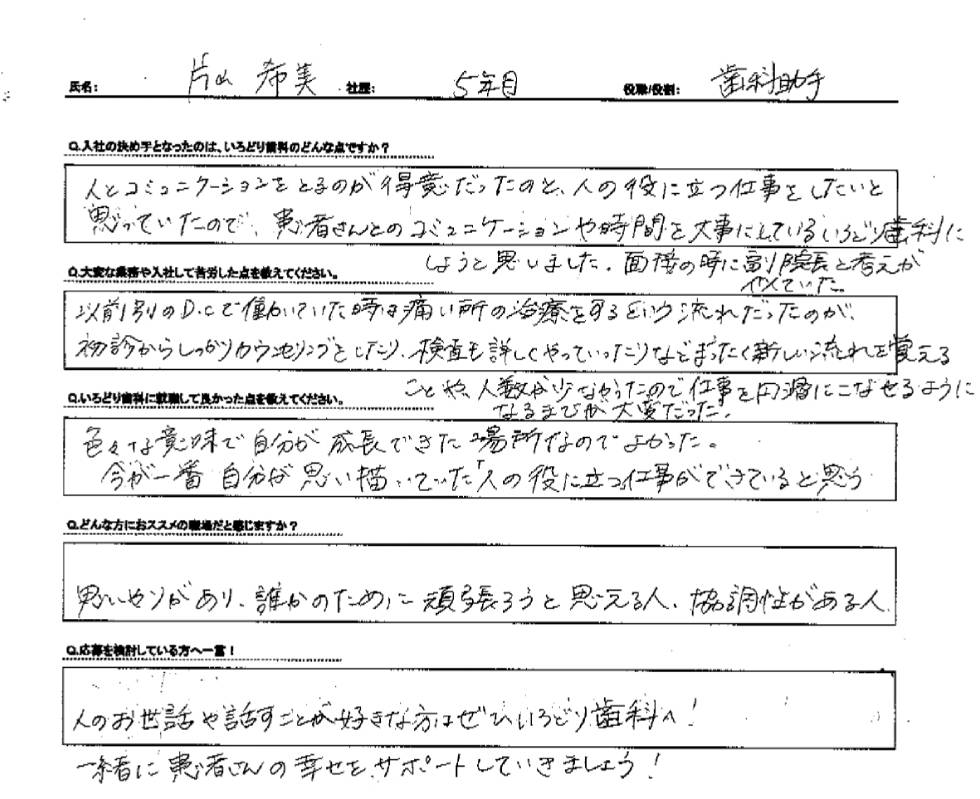 氏名: 片山 希美 社歴: 5年目 役職/役割: 歯科助手
Q.入社の決め手となったのは、いろどり歯科のどんな点ですか？
人とコミュニケーションをとるのが得意だったのと、人の役に立つ仕事をしたいと
思っていたので、患者さんとのコミュニケーションや時間を大事にしているいろどり歯科に
しようと思いました。面接の時に副院長と考えが
似ていた。
Q.大変な業務や入社して苦労した点を教えてください。
以前別のD.Cで働いていた時は痛い所の治療をするという流れだったのが、
初診からしっかりカウンセリングをしたり、検査も詳しくやっていったりなどまったく新しい流れを覚える
ことや、人数が少なかったので仕事を円滑にこなせるように
なるまでが大変だった。
Q.いろどり歯科に就職して良かった点を教えてください。
色々な意味で自分が成長できた場所なのでよかった。
今が一番自分が思い描いていた「人の役に立つ仕事ができていると思う
Q.どんな方におススメの職場だと感じますか？
思いやりがあり、誰かのために頑張ろうと思える人、協調性がある人
Q.応募を検討している方へ一言！
人のお世話や話すことが好きな方はぜひいろどり歯科へ！
一緒に患者さんの幸せをサポートしていきましょう！